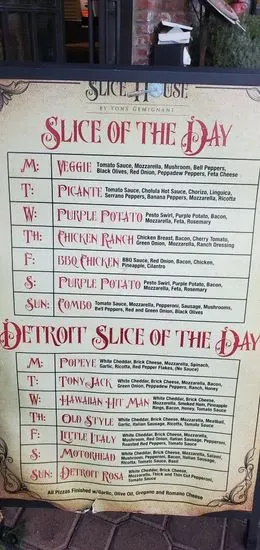 SLICE HOUSE
BY TONY GEMIGNANI
SLICE OF THE DAY
M: VEGGIE Tomato Sauce, Mozzarella, Mushroom, Bell Peppers,
Black Olives, Red Onion, Peppadew Peppers, Feta Cheese
T: PICANTE Tomato Sauce, Cholula Hot Sauce, Chorizo, Linguica,
Serrano Peppers, Banana Peppers, Mozzarella, Ricotta
W: PURPLE POTATO Pesto Swirl, Purple Potato, Bacon,
Mozzarella, Feta, Rosemary
TH: CHICKEN RANCH Chicken Breast, Bacon, Cherry Tomato,
Green Onion, Mozzarella, Ranch Dressing
F: BBQ CHICKEN BBQ Sauce, Red Onion, Bacon, Chicken,
Pineapple, Cilantro
S: PURPLE POTATO Pesto Swirl, Purple Potato, Bacon,
Mozzarella, Feta, Rosemary
SUN: COMBO Tomato Sauce, Mozzarella, Pepperoni, Sausage, Mushrooms,
Bell Peppers, Red and Green Onion, Black Olives
DETROIT SLICE OF THE DAY
M: POPEYE White Cheddar, Brick Cheese, Mozzarella, Spinach,
Garlic, Ricotta, Red Pepper Flakes, (No Sauce)
T: TONY JACK White Cheddar, Brick Cheese, Mozzarella, Bacon,
Green Onion, Peppadew Peppers, Ranch, Honey
W: HAWAIIAN HIT MAN White Cheddar, Brick Cheese,
Mozzarella, Smoked Ham, Pineapple
Rings, Bacon, Honey, Tomato Sauce
TH: OLD STYLE White Cheddar, Brick Cheese, Mozzarella, Meatball,
Garlic, Italian Sausage, Ricotta, Tomato Sauce
F: LITTLE ITALY White Cheddar, Brick Cheese, Mozzarella,
Mushroom, Red Onion, Italian Sausage, Pepperoni,
Roasted Red Peppers, Tomato Sauce
S: MOTORHEAD White Cheddar, Brick Cheese, Mozzarella, Salami,
Mushroom, Pepperoni, Bacon, Italian Sausage,
Ricotta, Tomato Sauce, Basil
SUN: DETROIT ROSA White Cheddar, Brick Cheese,
Mozzarella, Thick and Thin Cut Pepperoni,
Tomato Sauce
All Pizzas Finished w/Garlic, Olive Oil, Oregano and Romano Cheese